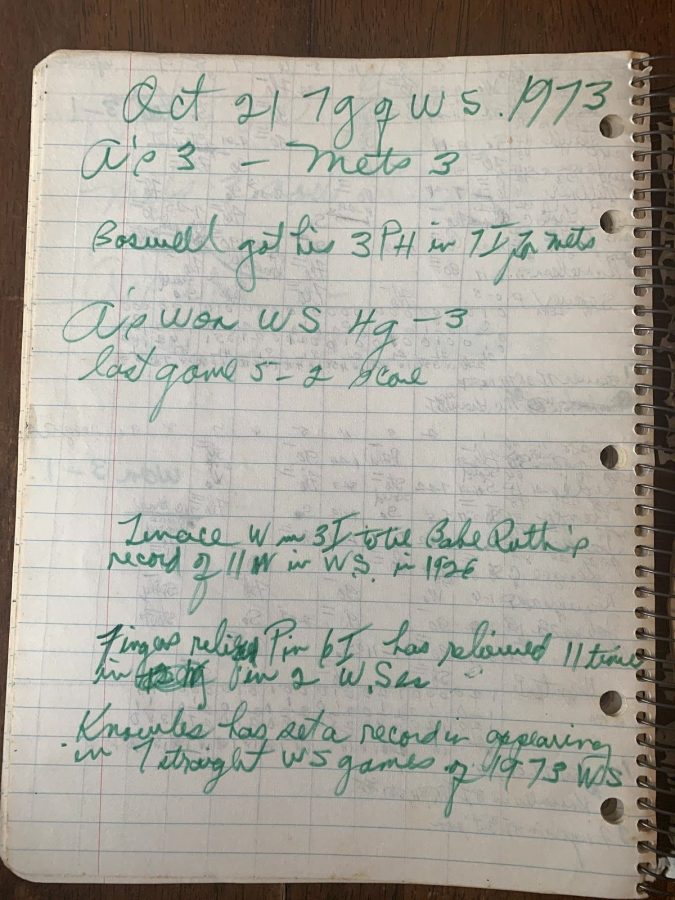 Oct 21 7g of WS. 1973
A's 3 - Mets 3
Boswell got his 3 PH in 7I for Mets
A's won WS 4g - 3
last game 5-2 score
Tenace W in 3I to tie Babe Ruth's
record of 11 W in W.S. in 1926
Fingers relief P in 6I has relieved 11 times
in in 2 W.Ses
Knowles has set a record in appearing
in 7 straight WS games of 1973 WS